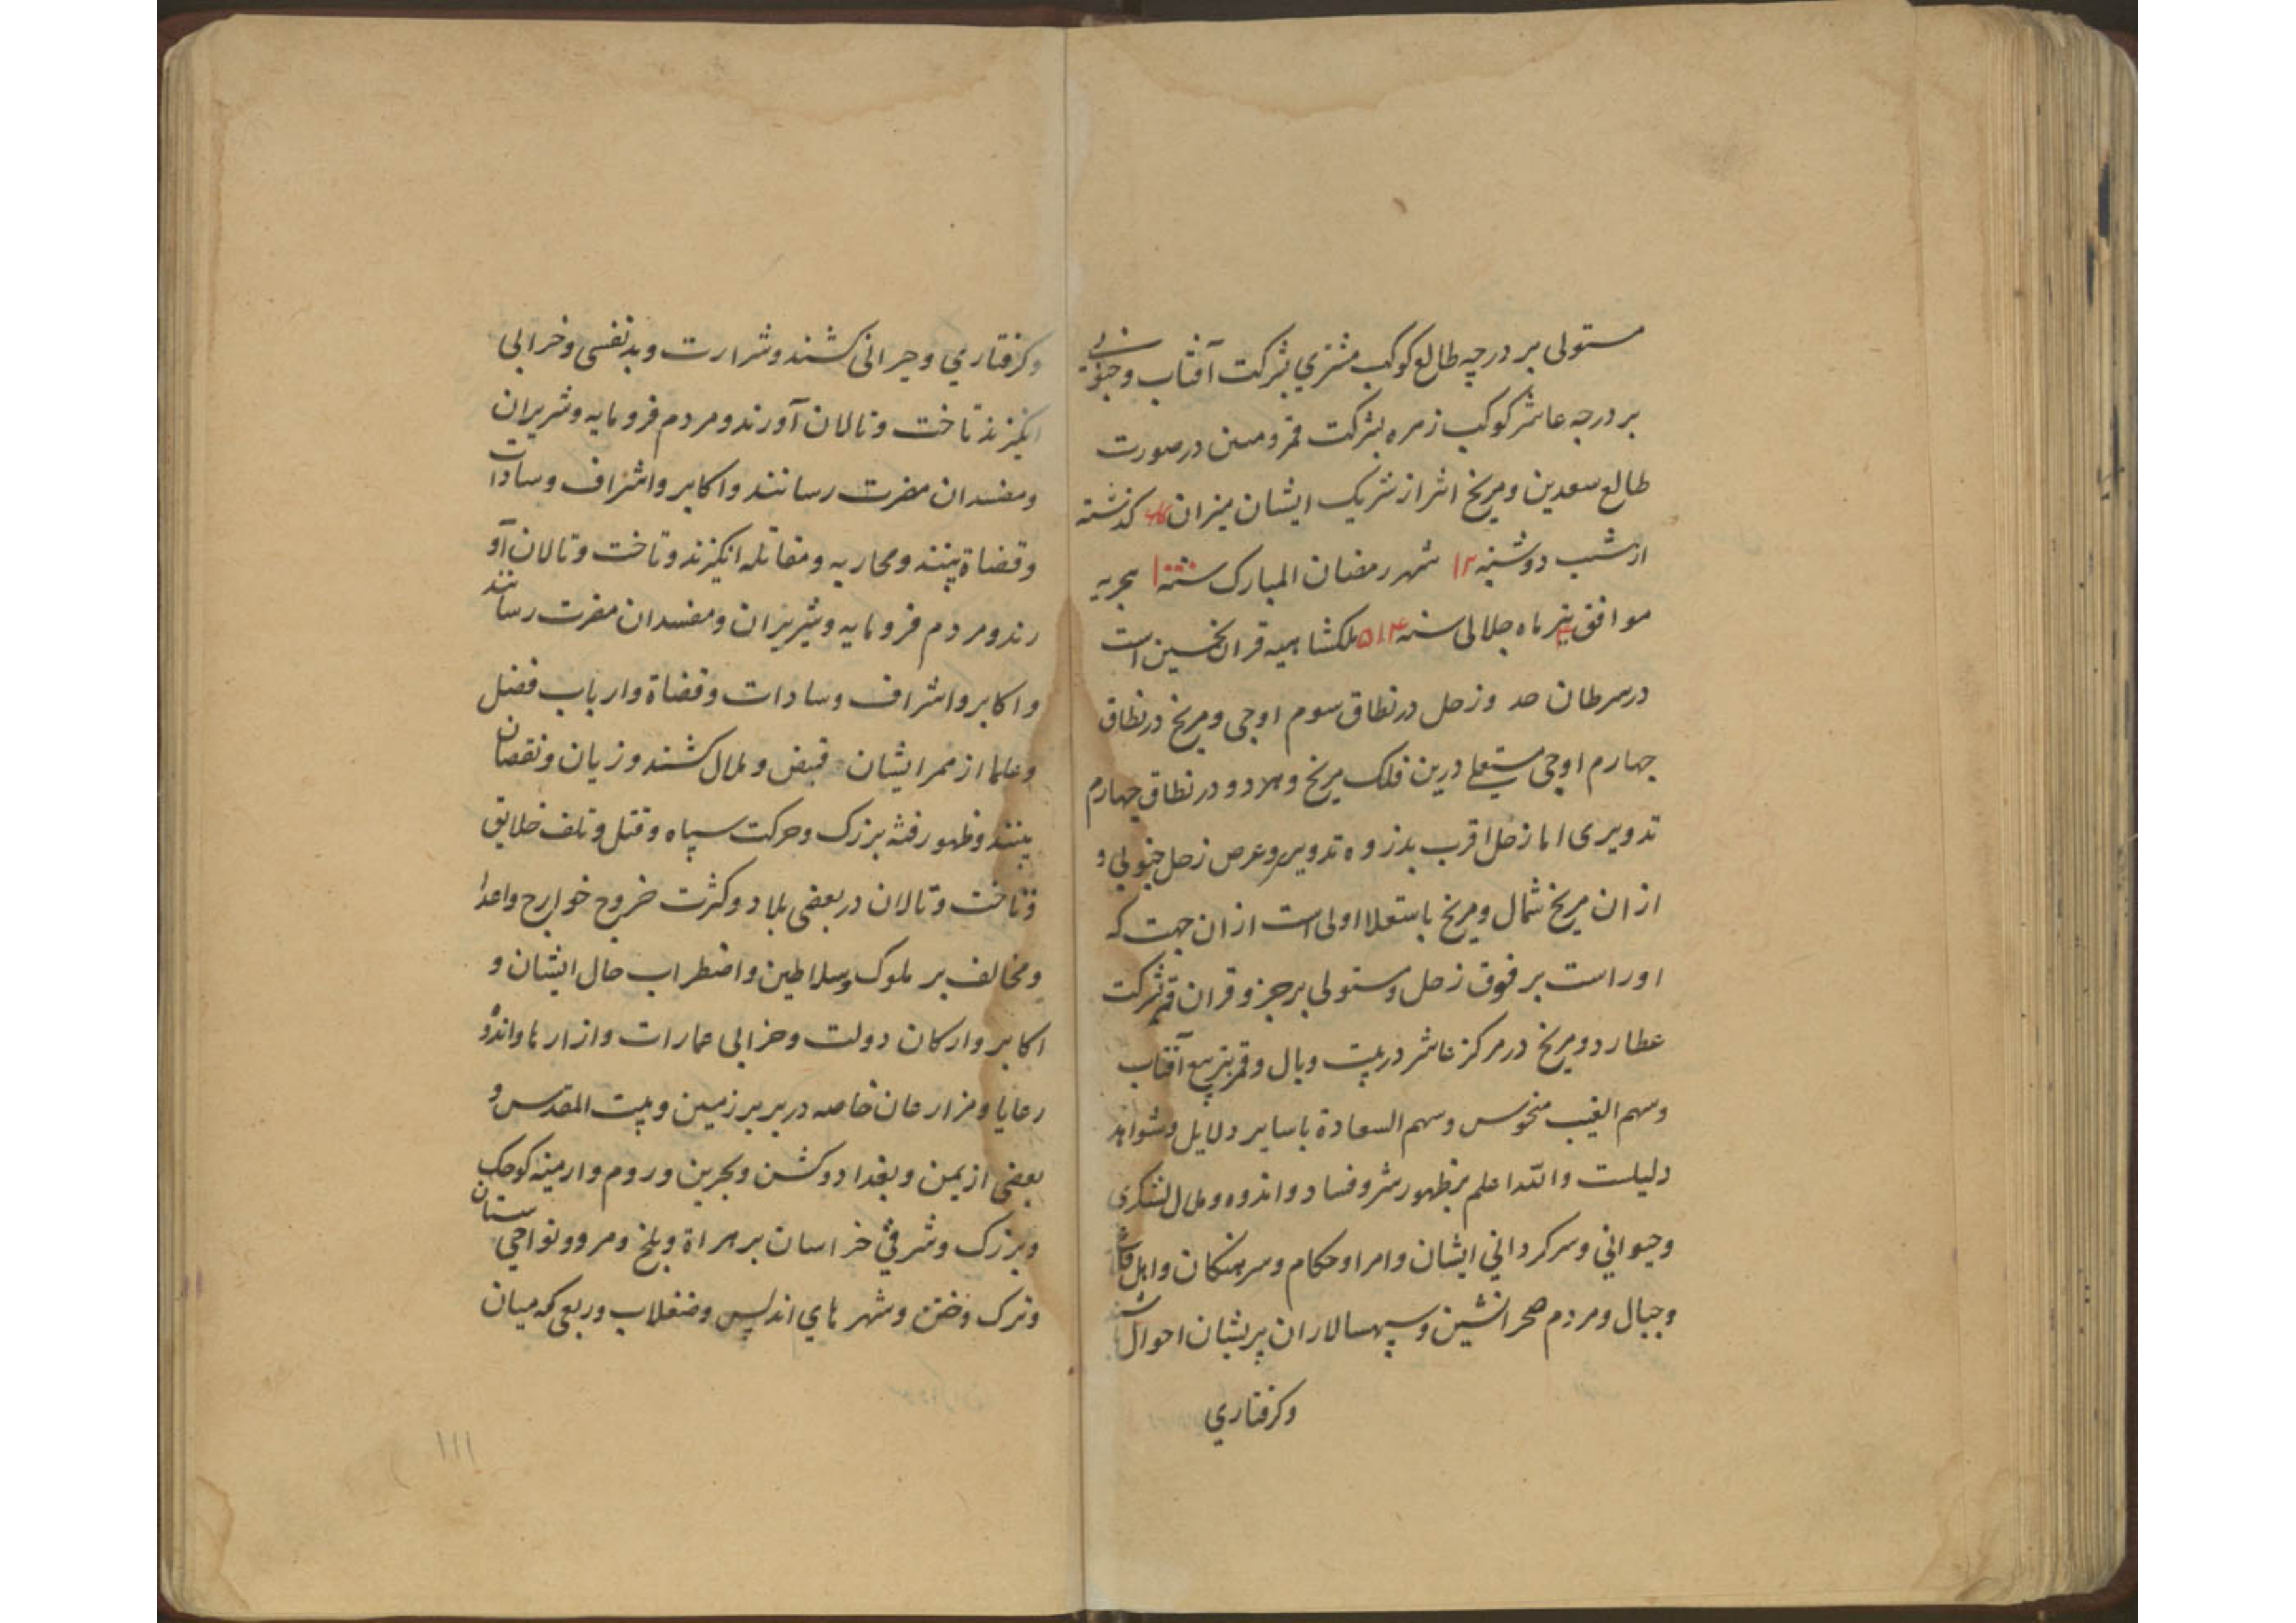 مستولی بر درجه طالع کوکب مشتري بشرکت آفتاب و جنوبی
بر درجه عاشر کوکب زهره بشرکت قمر و مبین در صورت
طالع سعدین و مریخ اثر از شریک ایشان میزان کذشته
از شب دوشنبه ۱۲ شهر رمضان المبارک سنه هجریه
موافق تیر ماه جلالی سنه ۵۱۴ ملکشاهیه قران نحسین است
در سرطان وزحل در نطاق سوم اوجی و مریخ در نطاق
چهارم اوجی مستعلی درین فلک مریخ و هر دو در نطاق چهارم
تدویری اما زحل اقرب بذروه تدویر وعرض زحل جنوبی و
از ان مریخ شمال ومریخ باستعلا اولی است از ان جهت که
اوراست بر فوق زحل ومستولی بر جزو قران قمر بشرکت
عطارد ومریخ در مرکز عاشر در بیت وبال وقمر بتربیع آفتاب
وسهم الغیب منحوس وسهم السعادة باسایر دلایل وشواهد
دلیلست والله اعلم بظهور شر وفساد واندوه وملال لشکری
وحیواني وسرکرداني ایشان وامرا وحکام وسرهنکان واهل
وجبال ومردم صحرانشین وسپهسالاران پریشان احوال
وکرفتاري
وکرفتاري وحیرانی کشند وشرارت وبد نفسی وخرابی
انکیزند تاخت وتالان آورند ومردم فرومایه وشریران
ومفسدان مضرت رسانند واکابر واشراف وسادات
وقضاة بینند ومحاربه ومقاتله انکیزند وتاخت وتالان آو
رند ومردم فرومایه وشریران ومفسدان مضرت رسانند
واکابر واشراف وسادات وقضاة وارباب فضل
وعلما از ممر ایشان قبض وملال کشند وزیان ونقصان
بینند وظهور فتنه بزرک وحرکت سپاه وقتل وتلف خلایق
وتاخت وتالان در بعضی بلاد وکثرت خروج خوارج واعدا
ومخالف بر ملوک وسلاطین واضطراب حال ایشان و
اکابر وارکان دولت وخرابی عمارات وازارها واندوه
رعایا ومزارعان خاصه در بربر زمین وبیت المقدس و
بعضی از یمن وبغداد وکشن وبحرین وروم وارمینه کوچک
وبزرک وشرقي خراسان بر هراة وبلخ ومرو ونواحی سیستان
وترک وختن وشهرهاي اندلس وصقلاب وربعی که میان
۱۱۱